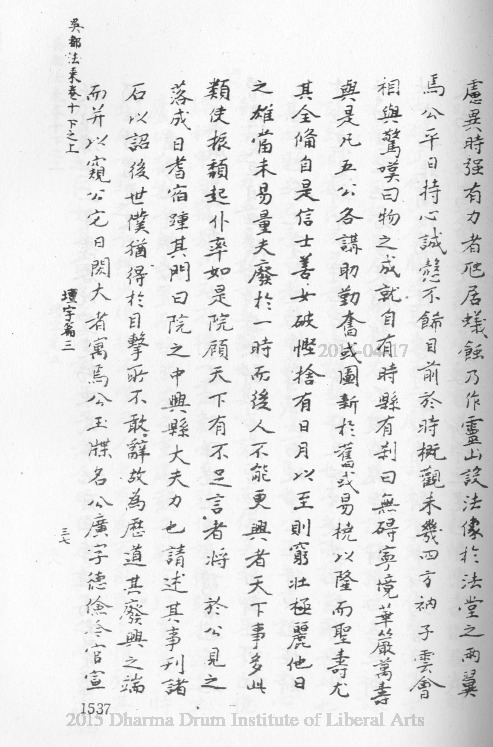 慮異時强有力者陁居蟻蝕乃作靈山設法像於法堂之兩翼
馬公平日持心誠慤不餙目前於時概觀未幾四方衲子雲會
相與驚嘆曰物之成就自有時縣有刹曰無碍寧境華嚴萬壽
與是凡五公各講助勤奮或圖新於舊或易橈以隆而聖壽尤
其全備自是信士善女破慳捨有日月以至則窮壯極麗他日
之雄當未易量夫廢於一時而後人不能更興者天下事多此
類使振頹起仆率如是院顧天下有不足言者將 於公見之
落成日耆宿踵其門曰院之中興縣大夫力也請述其事刊諸
石以詔後世僕猶得於目擊所不敢辭故為歷道其廢興之端
而并以窺公宅日閎大者寓焉公玉牒名公廣字德儉今官宣
吳都法乘卷十下之上
壇宇篇三
三七
1537
2015-04-17
2015 Dharma Drum Institute of Liberal Arts